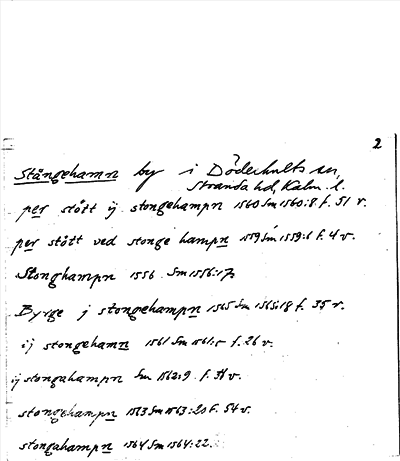 2
Stångehamn by i Döderhults sn,
Stranda hd, Kalm. l.
per stått ij stongehampn 1560 Sm 1560:8 f. 51 v.
per stått ved stonge hampn 1559 Sm 1559:6 f. 4 v.
Stonghampn 1556 Sm 1556:17
Byrge j stongehampn 1565 Sm 1565:18 f. 35 r.
ij stongehamn 1561 Sm 1561:5 f. 26 v.
ij stongahampn Sm 1562:9 f. 31 v.
stongehampn 1563 Sm 1563:20 f. 54 v.
stongahampn 1564 Sm 1564:22